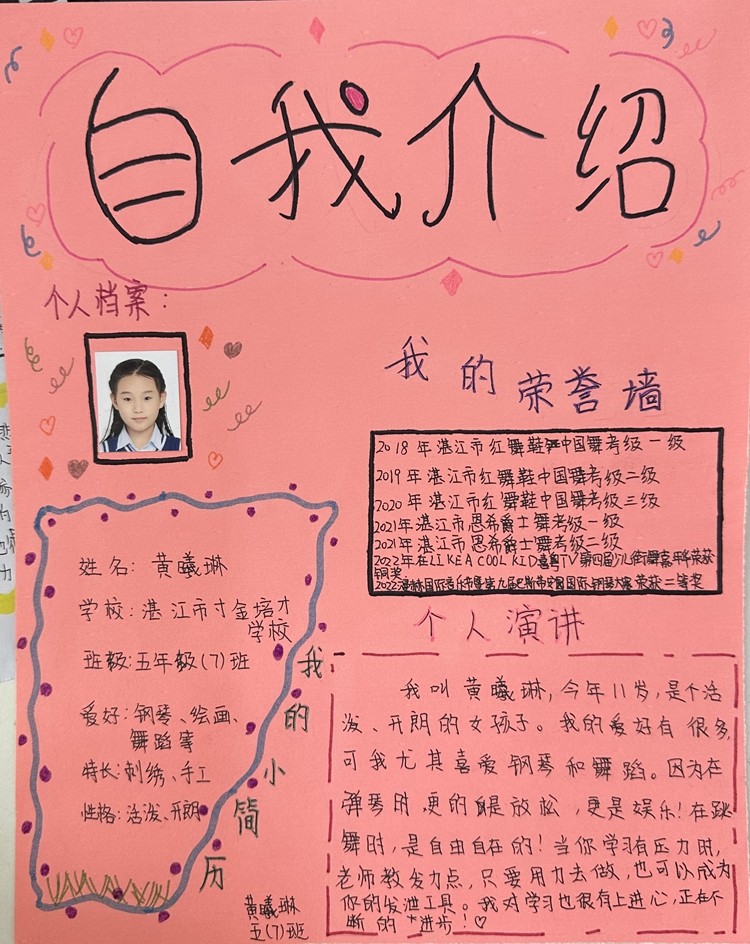 自我介绍
个人档案:
我的荣誉墙
2018年湛江市红舞鞋中国舞考级一级
2019年湛江市红舞鞋中国舞考级二级
2020年湛江市红舞鞋中国舞考级三级
2021年湛江市恩希爵士舞考级一级
2021年湛江市恩希爵士舞考级二级
2022年在LIKE A COOL KID 嘉粤TV第四届少儿街舞嘉年华荣获
铜奖
国际音乐节 第九届 国际钢琴大赛荣获二等奖
姓名: 黄曦琳
学校: 湛江市寸金培才
学校
班级: 五年级(7)班
爱好: 钢琴、绘画、
舞蹈等
特长: 刺绣、手工
性格: 活泼、开朗
我的小简历
黄曦琳
五(7)班
个人演讲
我叫黄曦琳,今年11岁,是个活
泼、开朗的女孩子。我的爱好有很多,
可我尤其喜爱钢琴和舞蹈。因为在
弹琴时,更的是放松,更是娱乐!在跳
舞时,是自由自在的!当你学习有压力时,
老师教发力点,只要用力去做,也可以成为
你的发泄工具。我对学习也很有上进心,正在不
断的"进步!♡